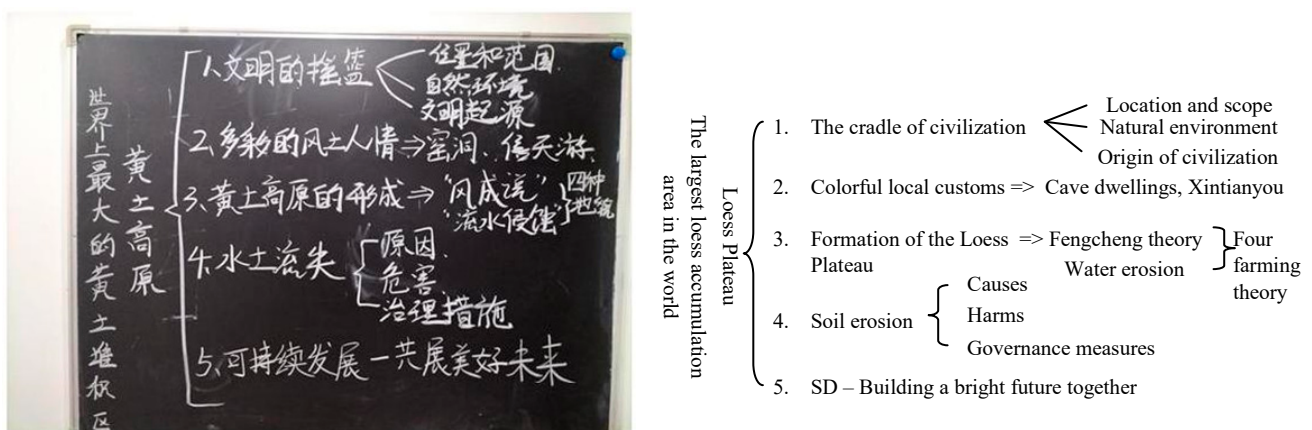 世界上最大的黄土堆积区
黄土高原
1、文明的摇篮
位置和范围
自然环境
文明起源
2、多彩的风土人情⇒窑洞、信天游
3、黄土高原的形成⇒"风成说"
"流水侵蚀"
四种
4、水土流失
原因
危害
治理措施
5、可持续发展一共展美好未来
The largest loess accumulation
area in the world
Loess Plateau
1. The cradle of civilization
Location and scope
Natural environment
Origin of civilization
2. Colorful local customs => Cave dwellings, Xintianyou
3. Formation of the Loess => Fengcheng theory
Plateau Water erosion
Four
farming
theory
4. Soil erosion
Causes
Harms
Governance measures
5. SD – Building a bright future together